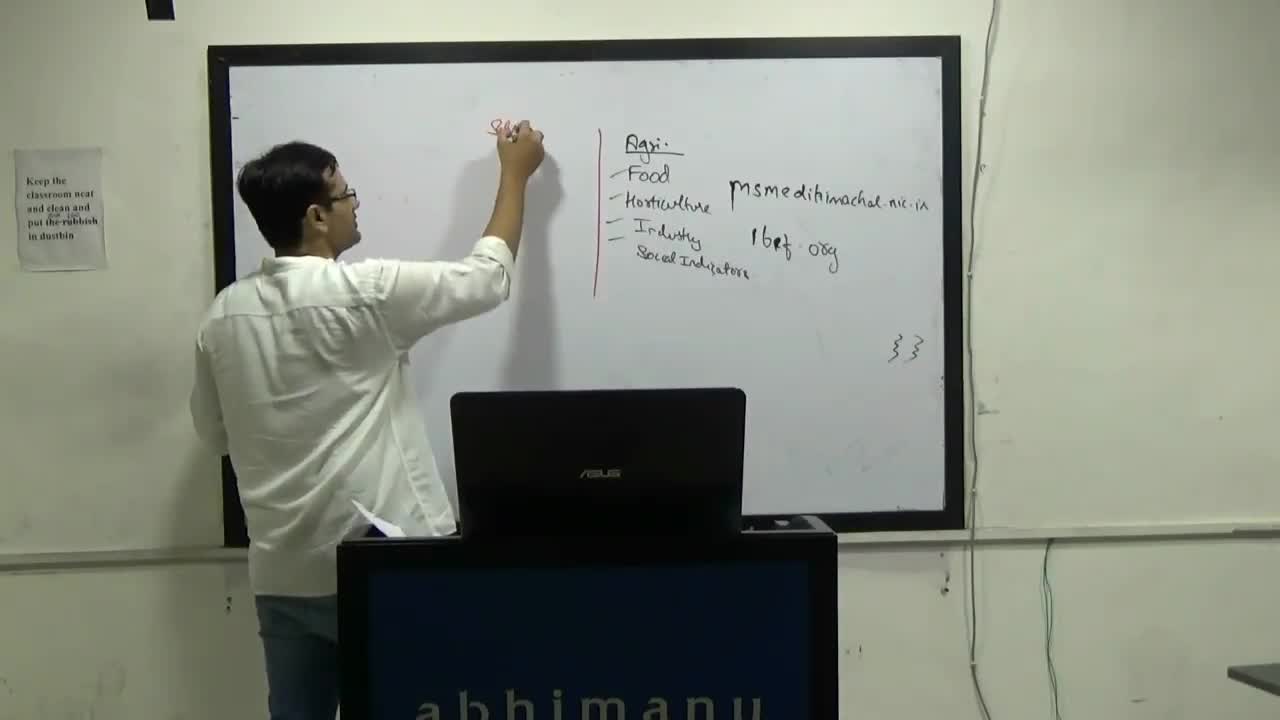 Keep the
classroom neat
and clean and
put the rubbish
in dustbin
Agri.
Food
Horticulture
Industry
Social Indicators
msmedihimachal.nic.in
ibef.org
ASUS
abhimanu